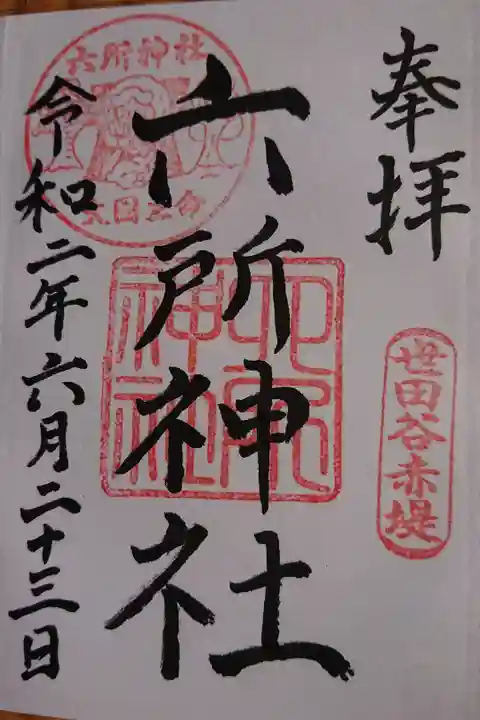 奉拝
世田谷赤堤
六所神社
六所神社
六所神社
令和二年六月二十三日